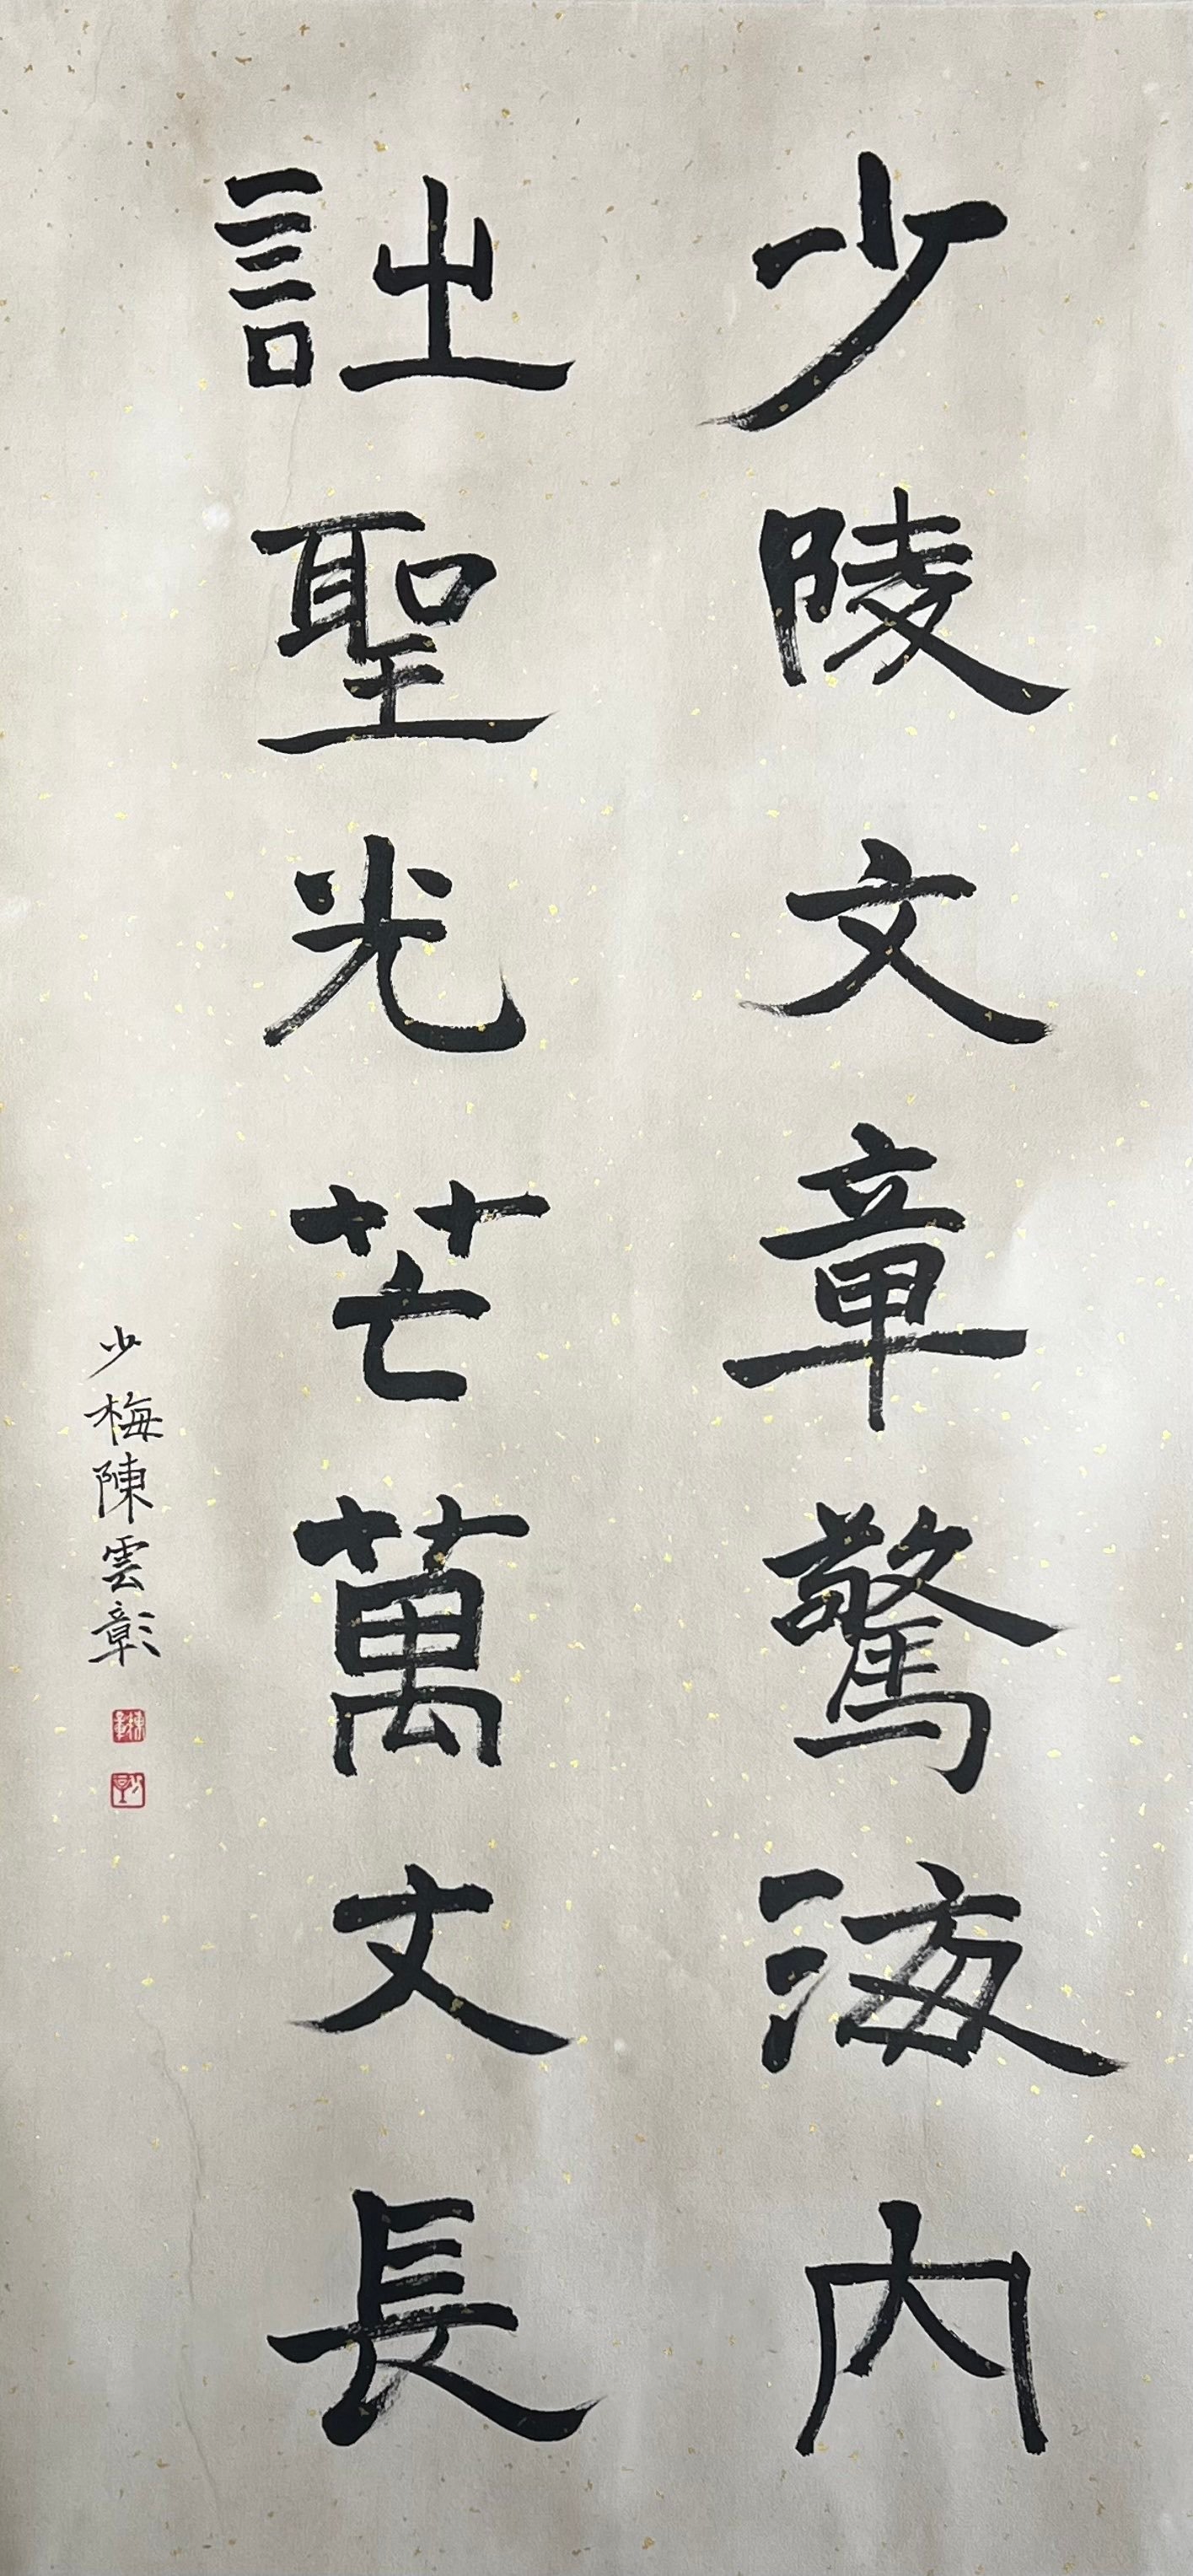 少陵文章驚海內
詘聖光芒萬丈長
少梅陳雲彰